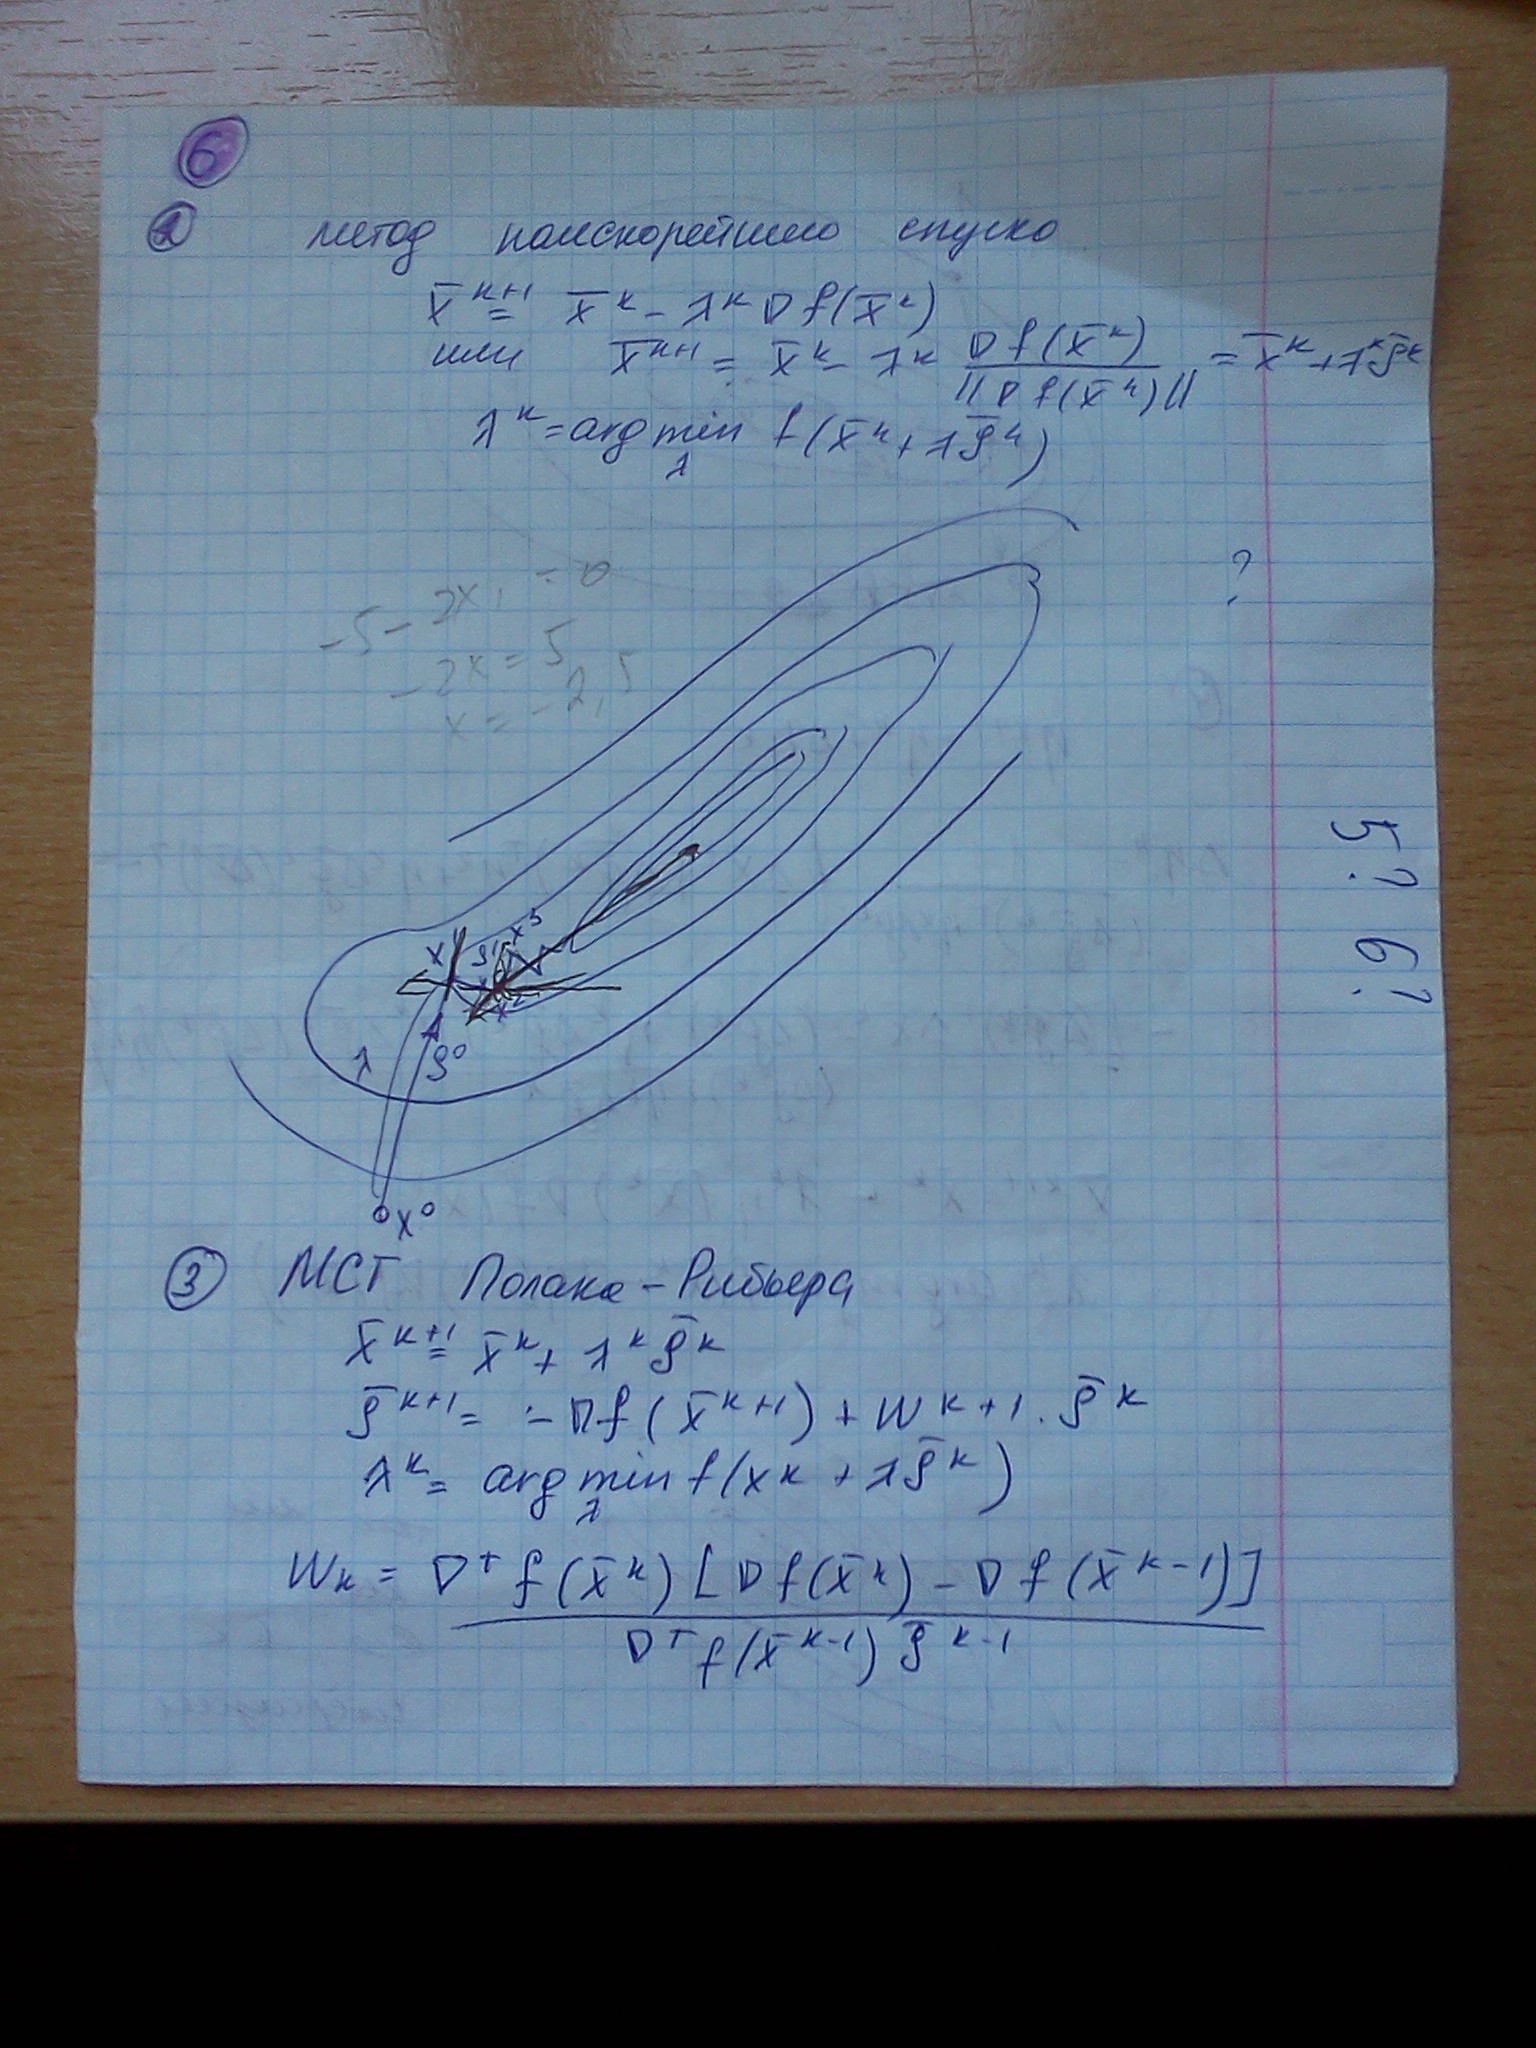 6
2 метод наискорейшего спуска
x̄^{k+1} = x̄^k - λ^k ∇f(x̄^k)
или x̄^{k+1} = x̄^k - λ^k ∇f(x̄^k) / ||∇f(x̄^k)|| = x̄^k + λ^k ρ̄^k
λ^k = arg min_λ f(x̄^k + λρ̄^k)
?
-5 - 2x₁ = 0
-2x = 5
x = -2,5
5? 6?
x¹ ρ¹ x³
x²
λ ρ⁰
x⁰
3 МСГ Полака-Рибьера
x̄^{k+1} = x̄^k + λ^k ρ̄^k
ρ̄^{k+1} = -∇f(x̄^{k+1}) + W^{k+1} · ρ̄^k
λ^k = arg min_λ f(x^k + λρ̄^k)
W_k = ∇^T f(x̄^k) [∇f(x̄^k) - ∇f(x̄^{k-1})]
∇^T f(x̄^{k-1}) ρ̄^{k-1}